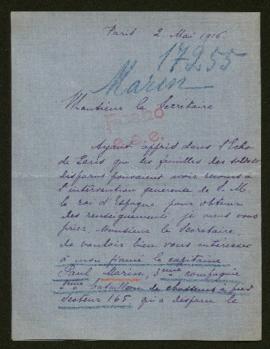 Paris 2 Mai 1916
17955
Marin
Monsieur le Secretaire
Ficha
Ayant appris dans l'Echo
de Paris que les familles des soldats
disparus pouvaient avoir recours à
l'intervention genereuse de S. M.
le roi d'Espagne pour obtenir
des renseignements je viens vous
prier, Monsieur le Secretaire
de vouloir bien vous interesser
à mon fiancé le capitaine
Paul Marin, 3eme compagnie
bataillon de chasseurs à pied
secteur 165, qui a disparu le